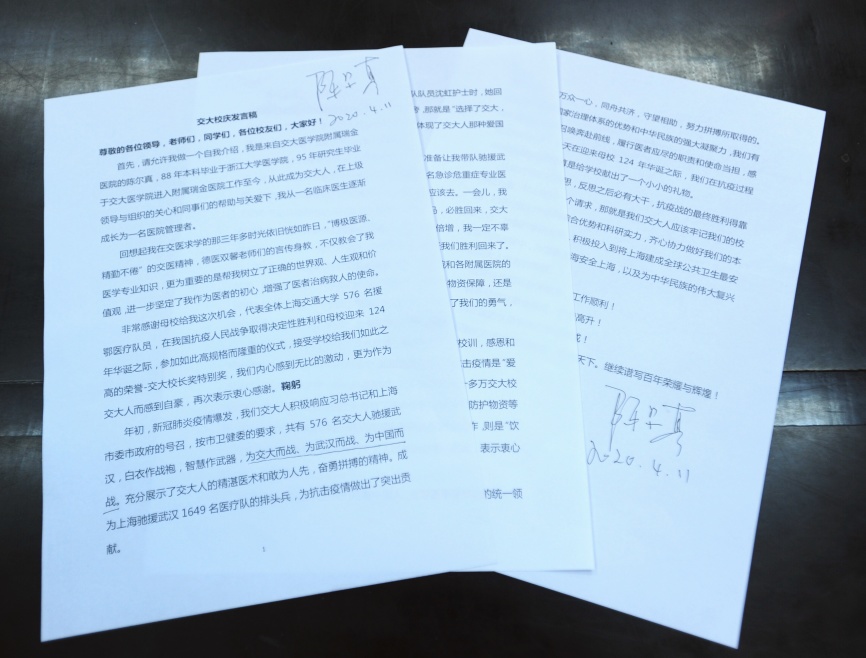 陈尔真
2020.4.11
交大校庆发言稿
尊敬的各位领导，老师们，同学们，各位校友们，大家好！
首先，请允许我做一个自我介绍，我是来自交大医学院附属瑞金
医院的陈尔真，88 年本科毕业于浙江大学医学院，95 年研究生毕业
于交大医学院进入附属瑞金医院工作至今，从此成为交大人，在上级
领导与组织的关心和同事们的帮助与关爱下，我从一名临床医生逐渐
成长为一名医院管理者。
回想起我在交医求学的那三年多时光依旧恍如昨日，“博极医源、
精勤不倦”的交医精神，德医双馨老师们的言传身教，不仅教会了我
医学专业知识，更为重要的是帮我树立了正确的世界观、人生观和价
值观，进一步坚定了我作为医者的初心，增强了医者治病救人的使命。
非常感谢母校给我这次机会，代表全体上海交通大学 576 名援
鄂医疗队员，在我国抗疫人民战争取得决定性胜利和母校迎来 124
年华诞之际，参加如此高规格而隆重的仪式，接受学校给我们如此之
高的荣誉-交大校长奖特别奖，我们内心感到无比的激动，更为作为
交大人而感到自豪，再次表示衷心感谢。鞠躬
年初，新冠肺炎疫情爆发，我们交大人积极响应习总书记和上海
市委市政府的号召，按市卫健委的要求，共有 576 名交大人驰援武
汉，白衣作战袍，智慧作武器，为交大而战、为武汉而战、为中国而
战。充分展示了交大人的精湛医术和敢为人先，奋勇拼搏的精神。成
为上海驰援武汉 1649 名医疗队的排头兵，为抗击疫情做出了突出贡
献。
1
队队员沈虹护士时，她回
，那就是“选择了交大，
体现了交大人那种爱国
准备让我带队驰援武
名急诊危重症专业医
应该去。一会儿，我
，必胜回来，交大
倍增，我一定不辜
我们胜利回来了。
和各附属医院的
物资保障，还是
了我们的勇气，
校训，感恩和
击疫情是“爱
十多万交大校
防护物资等
作，则是“饮
表示衷心
的统一领
万众一心，同舟共济，守望相助，努力拼搏所取得的。
家治理体系的优势和中华民族的强大凝聚力，我们有
召唤奔赴前线，履行医者应尽的职责和使命当担，感
天在迎来母校 124 年华诞之际，我们在抗疫过程
算是给学校献出了一个小小的礼物。
思，反思之后必有大干，抗疫战的最终胜利得靠
个请求，那就是我们交大人应该牢记我们的校
综合优势和科研实力，齐心协力做好我们的本
，积极投入到将上海建成全球公共卫生最安
海安全上海，以及为中华民族的伟大复兴
工作顺利！
高升！
！
天下。继续谱写百年荣耀与辉煌！
陈尔真
2020.4.11